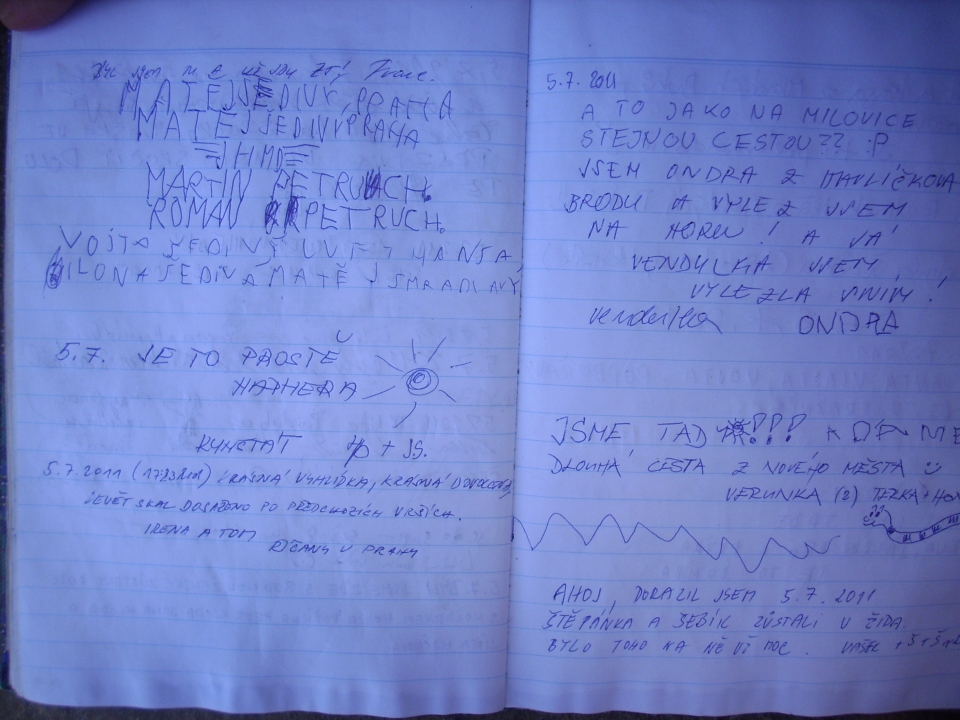 MATEJ ŠEDIVÝ, PRAHA
MATEJ SEDIVY PRAHA
JHMD
MARTIN PETRUCH.
ROMAN PETRUCH.
VOJTA
ILONA SEDIVA MATĚJ SMRADLAVÝ
5.7. JE TO PROSTĚ
NÁDHERA
KUNŠTÁT
5.7.2011 KRÁSNÁ VYHLÍDKA, KRÁSNÁ DOVOLENÁ,
DEVĚT SKAL DOSAŽENO PO PŘEDCHOZÍCH VRŠÍCH.
IRENA A TOM
ŘÍČANY U PRAHY
5.7.2011
A TO JAKO NA MILOVICE
STEJNOU CESTOU?? :P
JSEM ONDRA Z HAVLÍČKOVA
BRODU A VYLEZ JSEM
NA HORU! A JÁ
VENDULKA JSEM
VYLEZLA S NÍM!
vendulka ONDRA
JSME TADY!!!
DLOUHÁ CESTA Z NOVÉHO MĚSTA
VERUNKA (2) TERKA + HON
AHOJ, DORAZIL JSEM 5.7.2011
ŠTĚPÁNKA A ŠEBÍK ZŮSTALI U ŽIDA.
BYLO TOHO NA NĚ UŽ MOC. VAŠEK